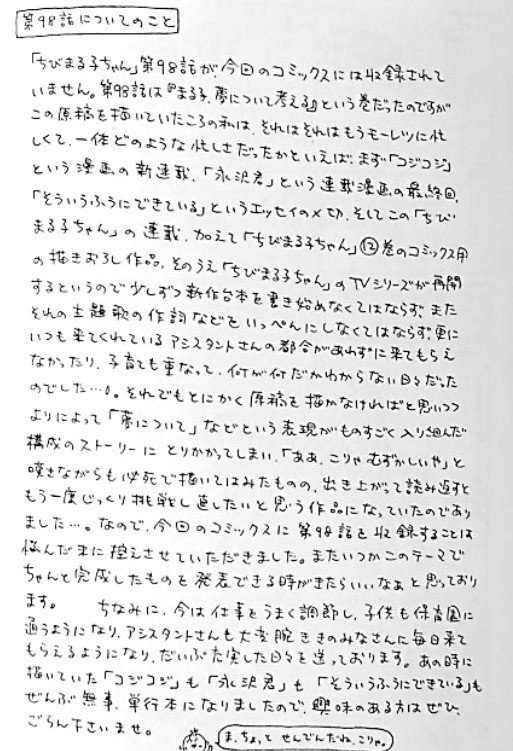 第98話についてのこと
「ちびまる子ちゃん」第98話が今回のコミックスには収録されて
いません。第98話は『まる子、夢について考える』という巻だったのですが
この原稿を描いていたころの私は、それはそれはもうモーレツに忙
しくて、一体どのような忙しさだったかといえば、まず「コジコジ」
という漫画の新連載、「永沢君」という連載漫画の最終回、
「そういうふうにできている」というエッセイの〆切、そしてこの「ちび
まる子ちゃん」の連載、加えて「ちびまる子ちゃん」⑫巻のコミックス用
の描きおろし作品、そのうえ「ちびまる子ちゃん」のTVシリーズが再開
するというので少しずつ新作台本を書き始めなくてはならず、また
それの主題歌の作詞などをいっぺんにしなくてはならず、更に
いつも来てくれているアシスタントさんの都合があわずに来てもらえ
なかったり、子育ても重なって、何が何だかわからない日々だった
のでした…。それでもとにかく原稿を描かなければと思いつつ
よりによって「夢について」などという表現がものすごく入り組んだ
構成のストーリーにとりかかってしまい、「ああ、こりゃむずかしいや」と
嘆きながらも必死で描いてはみたものの、出き上がって読み返すと
もう一度じっくり挑戦し直したいと思う作品になっていたのであり
ました…。なので、今回のコミックスに第98話を収録することは
悩んだ末に控えさせていただきました。またいつかこのテーマで
ちゃんと完成したものを発表できる時がきたらいいなぁと思っており
ます。　ちなみに、今は仕事をうまく調節し、子供も保育園に
通うようになり、アシスタントさんも大変腕ききのみなさんに毎日来て
もらえるようになり、だいぶ充実した日々を送っております。あの時に
描いていた「コジコジ」も「永沢君」も「そういうふうにできている」も
ぜんぶ無事、単行本になりましたので、興味のある方はぜひ、
ごらん下さいませ。
ま、ちょっとせんでんだね、こりゃ。